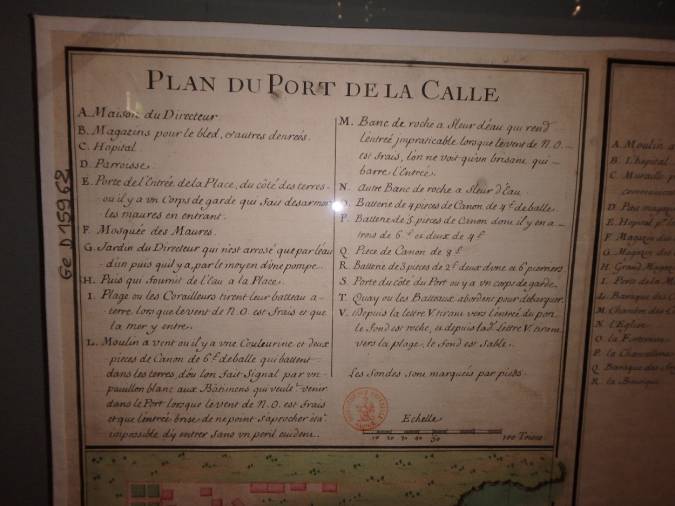 PLAN DU PORT DE LA CALLE
A. Maison du Directeur
B. Magazins pour le bled, et autres denrées.
C. Hopital
D. Parroisse
E. Porte de l'Entrée de la Place, du côté des terres
ou il y a vn Corps de garde qui fais desarmer
les maures en entrant.
F. Mosquée des Maures.
G. Jardin du Directeur qui n'est arrosé que par l'eau
d'un puis qu'il y a, par le moyen d'vne pompe.
H. Puis qui fournit de l'eau a la Place.
I. Plage ou les Corailleurs tirent leur batteau a
terre, lors que le vent de N.O. est frais et que
la mer y entre.
L. Moulin a vent ou il y a vne Couleurine et deux
pieces de Canon de 6.ᵗ de balle qui battent
dans les terres, d'ou lon fait Signal par vn
pauillon blanc aux Bâtimens qui veulᵗ venir
dans le Port lorsque le vent de N.O. est frais
et que l'entrée brise, de ne point s'aprocher
impossible d'y entrer sans vn peril euident.
M. Banc de roche a fleur d'eau qui rend
l'entreé impraticable lorsque le vent de N.O.
est frais, l'on ne voit qu'vn brisant qui
barre l'Entreé.
N. Autre Banc de roche a fleur d'Eau.
O. Batterie de 4 pieces de Canon de 4.ᵗ de balle.
P. Batterie de 5 pieces de Canon dont il y en a
trois de 6.ᵗ et deux de 4.ᵗ
Q. Piece de Canon de 8.ᵗ
R. Batterie de 3 pieces de 2.ᵗ deux d'vne et 6 pierriers
S. Porte du côté du Port ou y a vn corps de garde.
T. Quay ou les Batteaux abordent pour debarquer.
V. Depuis la lettre V. tirant vers l'entreé du port
le fond est roche, et depuis lad. lettre V. tirant
vers la plage, le fond est Sable.
Les Sondes sont marqueés par pieds.
Echelle
10 20 30 40 50 100 Toises
Ge D 15962
A. Moulin a
B. L'hopital
C. Muraille
D. Puis
E. Hopital
F. Magazin
G. Magazin
H. Grand Magaz
I. Fort de la
L. Baraque des
M. Chambre des
N. l'Eglise
O. la Fontaine
P. la Chancellerie
Q. Baraque des
R. la Bastique